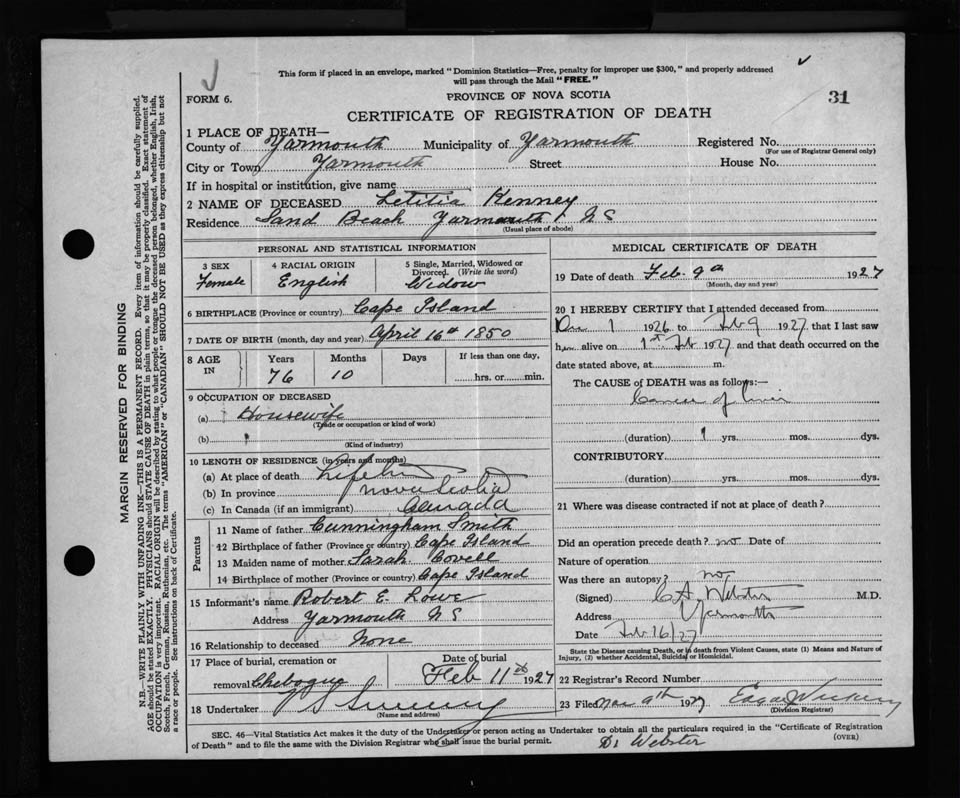 This form if placed in an envelope, marked "Dominion Statistics—Free, penalty for improper use $300," and properly addressed
will pass through the Mail "FREE."
FORM 6.
PROVINCE OF NOVA SCOTIA
31
CERTIFICATE OF REGISTRATION OF DEATH
1 PLACE OF DEATH—
County of Yarmouth Municipality of Yarmouth Registered No.
(For use of Registrar General only)
City or Town Yarmouth Street House No.
If in hospital or institution, give name
2 NAME OF DECEASED Letitia Kenney
Residence Sand Beach Yarmouth N S
(Usual place of abode)
PERSONAL AND STATISTICAL INFORMATION
3 SEX 4 RACIAL ORIGIN 5 Single, Married, Widowed or
Divorced. (Write the word)
Female English Widow
6 BIRTHPLACE (Province or country) Cape Island
7 DATE OF BIRTH (month, day and year) April 16th 1850
8 AGE IN Years Months Days If less than one day,
76 10 hrs. or min.
9 OCCUPATION OF DECEASED
(a) Housewife
(Trade or occupation or kind of work)
(b)
(Kind of industry)
10 LENGTH OF RESIDENCE (in years and months)
(a) At place of death Lifetime
(b) In province Nova Scotia
(c) In Canada (if an immigrant) Canada
Parents
11 Name of father Cunningham Smith
12 Birthplace of father (Province or country) Cape Island
13 Maiden name of mother Sarah Covell
14 Birthplace of mother (Province or country) Cape Island
15 Informant's name Robert E. Lowe
Address Yarmouth N S
16 Relationship to deceased None
17 Place of burial, cremation or Date of burial
removal Chebogue Feb 11th 1927
18 Undertaker
(Name and address)
MEDICAL CERTIFICATE OF DEATH
19 Date of death Feb 9th 1927
(Month, day and year)
20 I HEREBY CERTIFY that I attended deceased from
Dec 1 1926 to Feb 9 1927 that I last saw
her alive on 1st Feb 1927 and that death occurred on the
date stated above, at m.
The CAUSE of DEATH was as follows:—
Cancer of liver
(duration) 1 yrs. mos. dys.
CONTRIBUTORY
(duration) yrs. mos. dys.
21 Where was disease contracted if not at place of death?
Did an operation precede death? no Date of
Nature of operation
Was there an autopsy? no
(Signed) C A Webster M.D.
Address Yarmouth
Date Feb 16/27
State the Disease causing Death, or in death from Violent Causes, state (1) Means and Nature of
Injury, (2) whether Accidental, Suicidal or Homicidal.
22 Registrar's Record Number
23 Filed 9th 1927
(Division Registrar)
SEC. 46—Vital Statistics Act makes it the duty of the Undertaker or person acting as Undertaker to obtain all the particulars required in the "Certificate of Registration
of Death" and to file the same with the Division Registrar who shall issue the burial permit.
(OVER)
Dr Webster
MARGIN RESERVED FOR BINDING
N.B.—WRITE PLAINLY WITH UNFADING INK—THIS IS A PERMANENT RECORD. Every item of information should be carefully supplied.
AGE should be stated EXACTLY. PHYSICIANS should STATE CAUSE OF DEATH in plain terms, so that it may be properly classified. Exact statement of
OCCUPATION is very important. RACIAL ORIGIN will be described by stating to what people or tongue the deceased person belonged, whether English, Irish,
Scotch, French, German, Russian, Ruthenian, etc. The terms "AMERICAN" or "CANADIAN" SHOULD NOT BE USED as they express citizenship but not
a race or people. See instructions on back of Certificate.